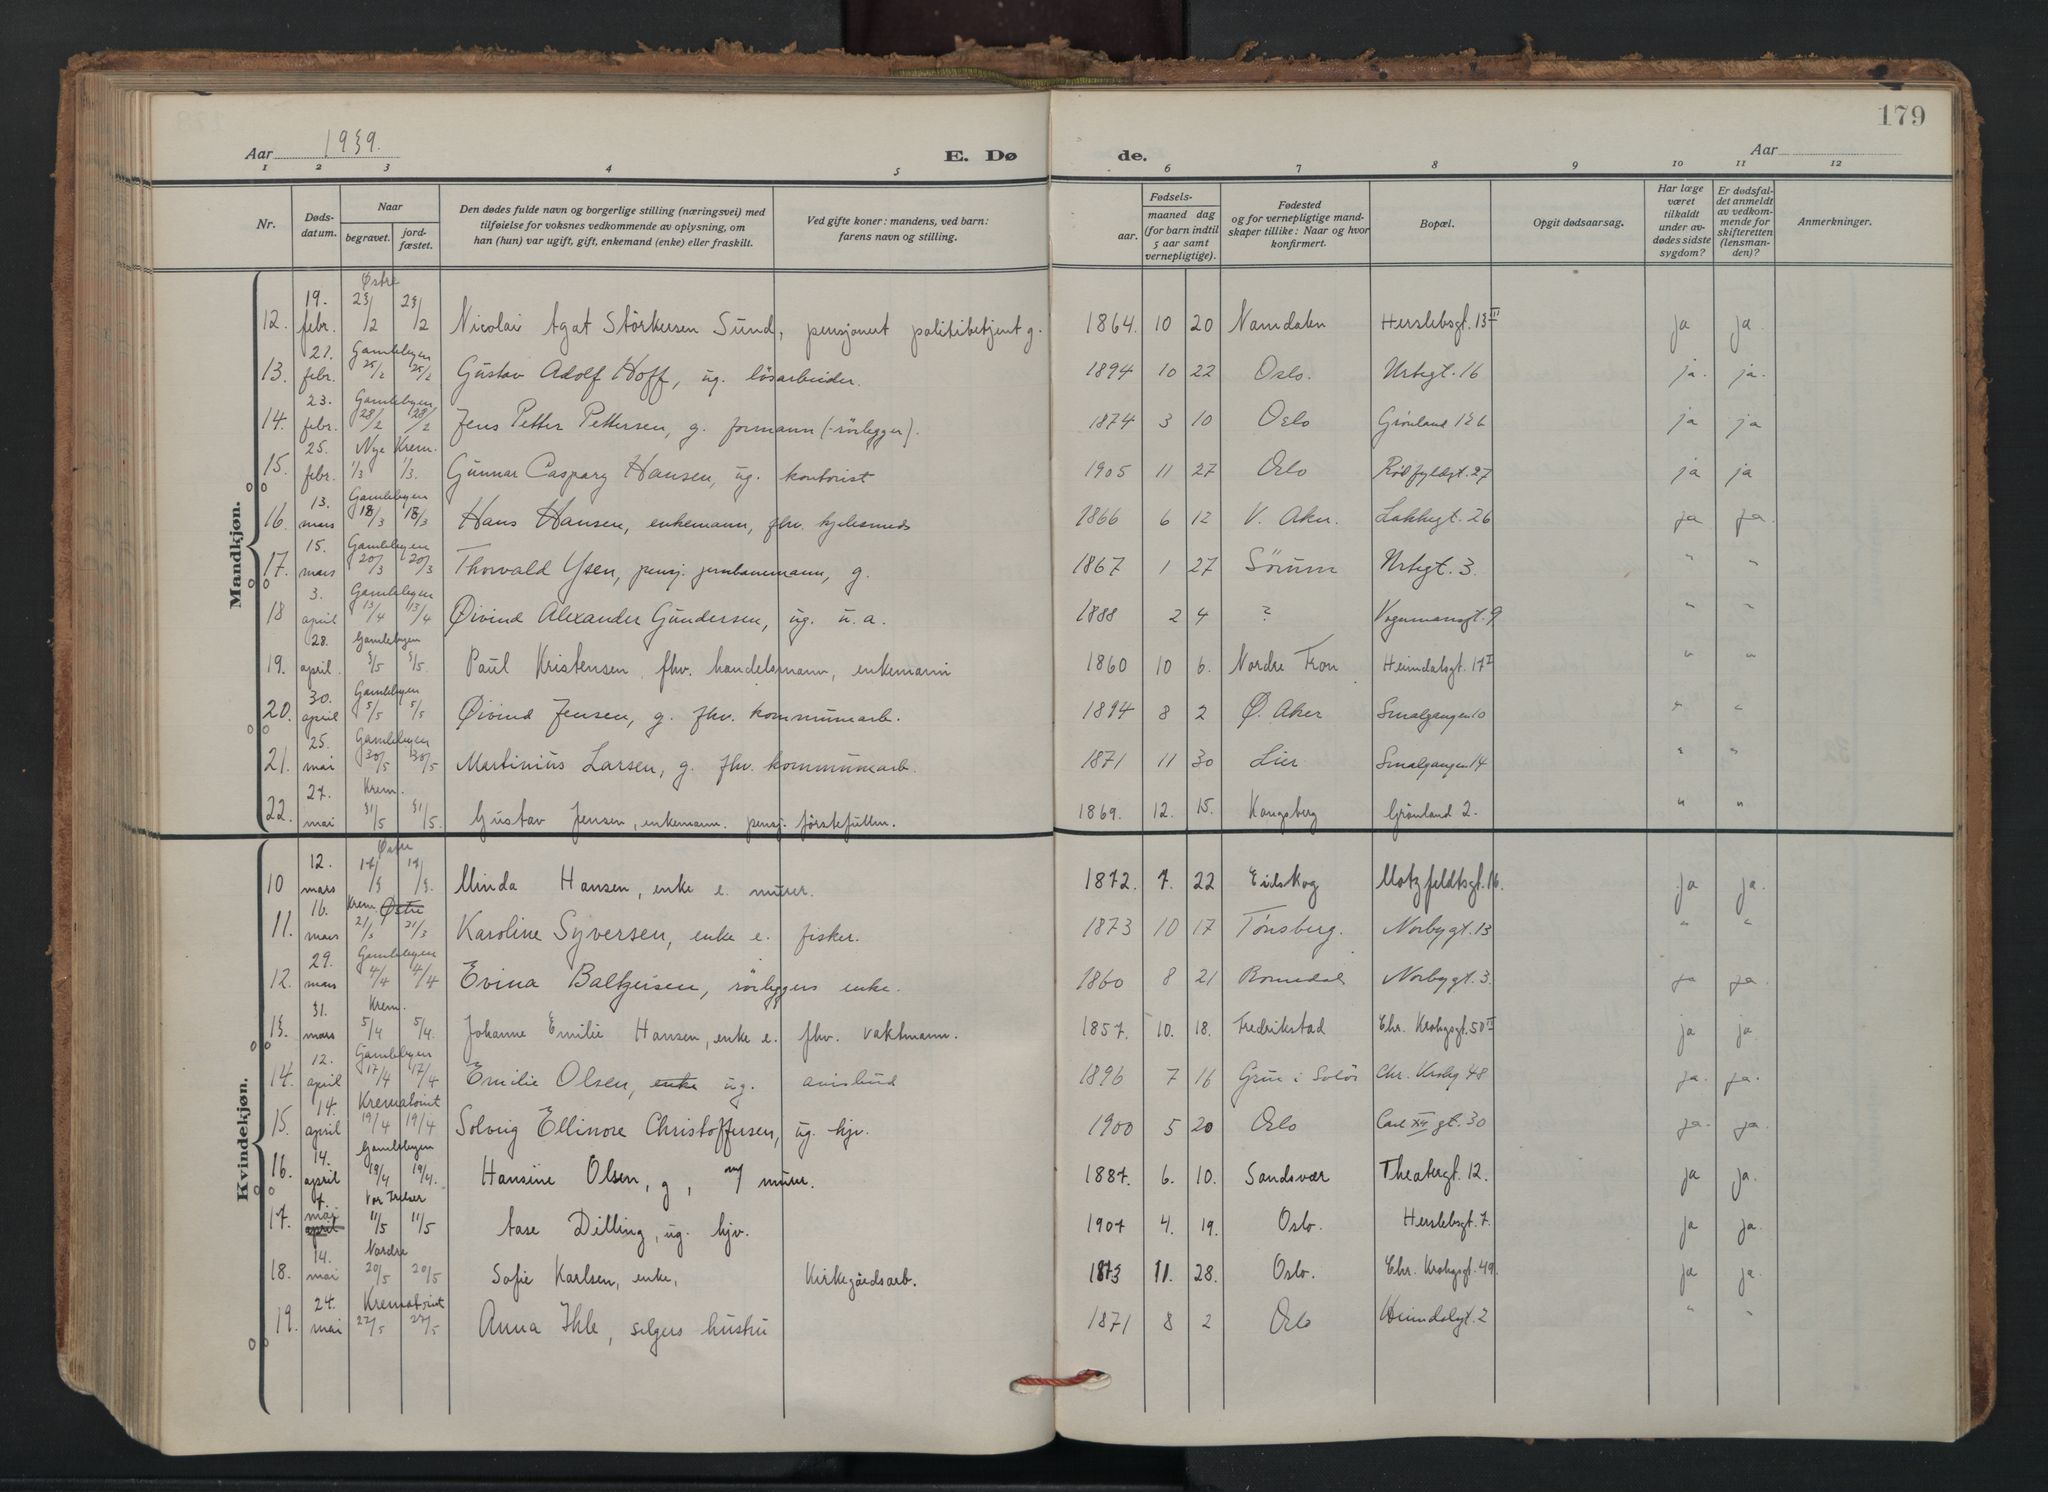 179
Aar 1939.
E. Dø
de.
Aar
1 2 3 4 5 6 7 8 9 10 11 12
Nr.
Døds-datum.
Naar
begravet.
jord-fæstet.
Den dødes fulde navn og borgerlige stilling (næringsvei) med tilføielse for voksnes vedkommende av oplysning, om han (hun) var ugift, gift, enkemand (enke) eller fraskilt.
Ved gifte koner: mandens, ved barn: farens navn og stilling.
Fødsels-
aar.
maaned dag
(for barn indtil 5 aar samt vernepligtige).
Fødested og for vernepligtige mandskaper tillike: Naar og hvor konfirmert.
Bopæl.
Opgit dødsaarsag.
Har læge været tilkaldt under avdødes sidste sygdom?
Er dødsfaldet anmeldt av vedkommende for skifteretten (lensmanden)?
Anmerkninger.
Mandkjøn.
Østre
12. 19. febr. 23/2 23/2 Nicolai Agat Störkersen Sund, pensjonert politibetjent g. 1864. 10 20 Namdalen Herslebsgt. 13 III ja ja.
Gamlebyen
13. 21. febr. 25/2 25/2 Gustav Adolf Hoff, ug. løsarbeider. 1894 10 22 Oslo. Urtegt. 16 ja. ja.
Gamlebyen
14. 23. febr. 28/2 28/2 Jens Petter Pettersen, g. formann (-rörlegger). 1874 3 10 Oslo Grønland 126 ja ja
Nye Krem.
15. 25. febr. 1/3 1/3. Gunnar Caspary Hansen, ug. kontorist 1905 11 27 Oslo Rödfyldgt. 27 ja ja
Gamlebyen
16. 13. mars 18/3 18/3 Hans Hansen, enkemann, fhv. kjelesmed 1866 6 12 V. Aker. Lakkegt. 26 ja ja.
Gamlebyen
17. 15. mars 20/3 20/3 Thorvald Ysen, pensj. jernbanemann, g. 1867 1 27 Sörum Urtegt. 3. " "
Gamlebyen
18 3. april 13/4 13/4 Øivind Alexander Gundersen, ug. u.a. 1888 2 4 ? Vognmansgt. 9 " "
Gamlebyen
19. 28. april. 3/5 3/5. Paul Kristensen, fhv. handelsmann, enkemann 1860 10 6. Nordre Fron Heimdalsgt. 17 I " "
Gamlebyen
20. 30. april 5/5 5/5 Øivind Jensen, g. fhv. kommunearb. 1894 8 2 Ø. Aker Smalgangen 10 " "
Gamlebyen
21. 25. mai 30/5 30/5 Martinius Larsen, g. fhv. kommunearb. 1871 11 30 Lier Smalgangen 14 " "
Krem.
22. 27. mai 31/5 31/5. Gustav Jensen, enkemann. pensj. förstefullm. 1869. 12. 15. Kongsberg Grönland 2. " "
Kvindekjøn.
Østre
10 12. mars 17/3 17/3. Minda Hansen, enke e. murer. 1872. 7. 22 Eidskog Motzfeldtsgt. 16. ja ja.
Krem. Østre
11. 16. mars 21/3 21/3 Karoline Syversen, enke e. fisker. 1873 10 17 Tønsberg. Norbygt. 13 " "
Gamlebyen
12. 29. mars 4/4 4/4 Evina Baltzersen, rörleggers enke. 1860 8 21 Romedal Norbygt. 3. ja ja.
Krem.
13. 31. mars 5/4 5/4. Johanne Emilie Hansen, enke e. fhv. vaktmann. 1857. 10. 18. Fredrikstad Chr. Krohgsgt. 50 II ja ja.
Gamlebyen
14. 12. april 17/4 17/4 Emilie Olsen, enke ug. avisbud 1896 7 16 Grue i Solör Chr. Krohg 48 ja. ja.
Krematoriet
15. 14. april 19/4 19/4 Solveig Ellinore Christoffersen, ug. hjv. 1900 5 20 Oslo Carl XII gt. 30 ja. ja.
Gamlebyen
16. 14. april 19/4 19/4. Hansine Olsen, g, m/ murer. 1887. 6. 10. Sandsvær Theatergt. 12. ja ja.
Vor Frelser
17. 7. mai april 11/5 11/5 Aase Dilling, ug. hjv. 1907 4. 19. Oslo. Herslebsgt. 7. ja ja.
Nordre
18. 14. mai 20/5 20/5 Sofie Karlsen, enke, Kirkegårdsarb. 1873 11. 28. Oslo. Chr. Krohgsgt. 49. ja ja.
Krematoriet
19. 24. mai 27/5 27/5. Anna Ihle, selgers hustru 1871 8 2 Oslo Heimdalsgt. 2 " "